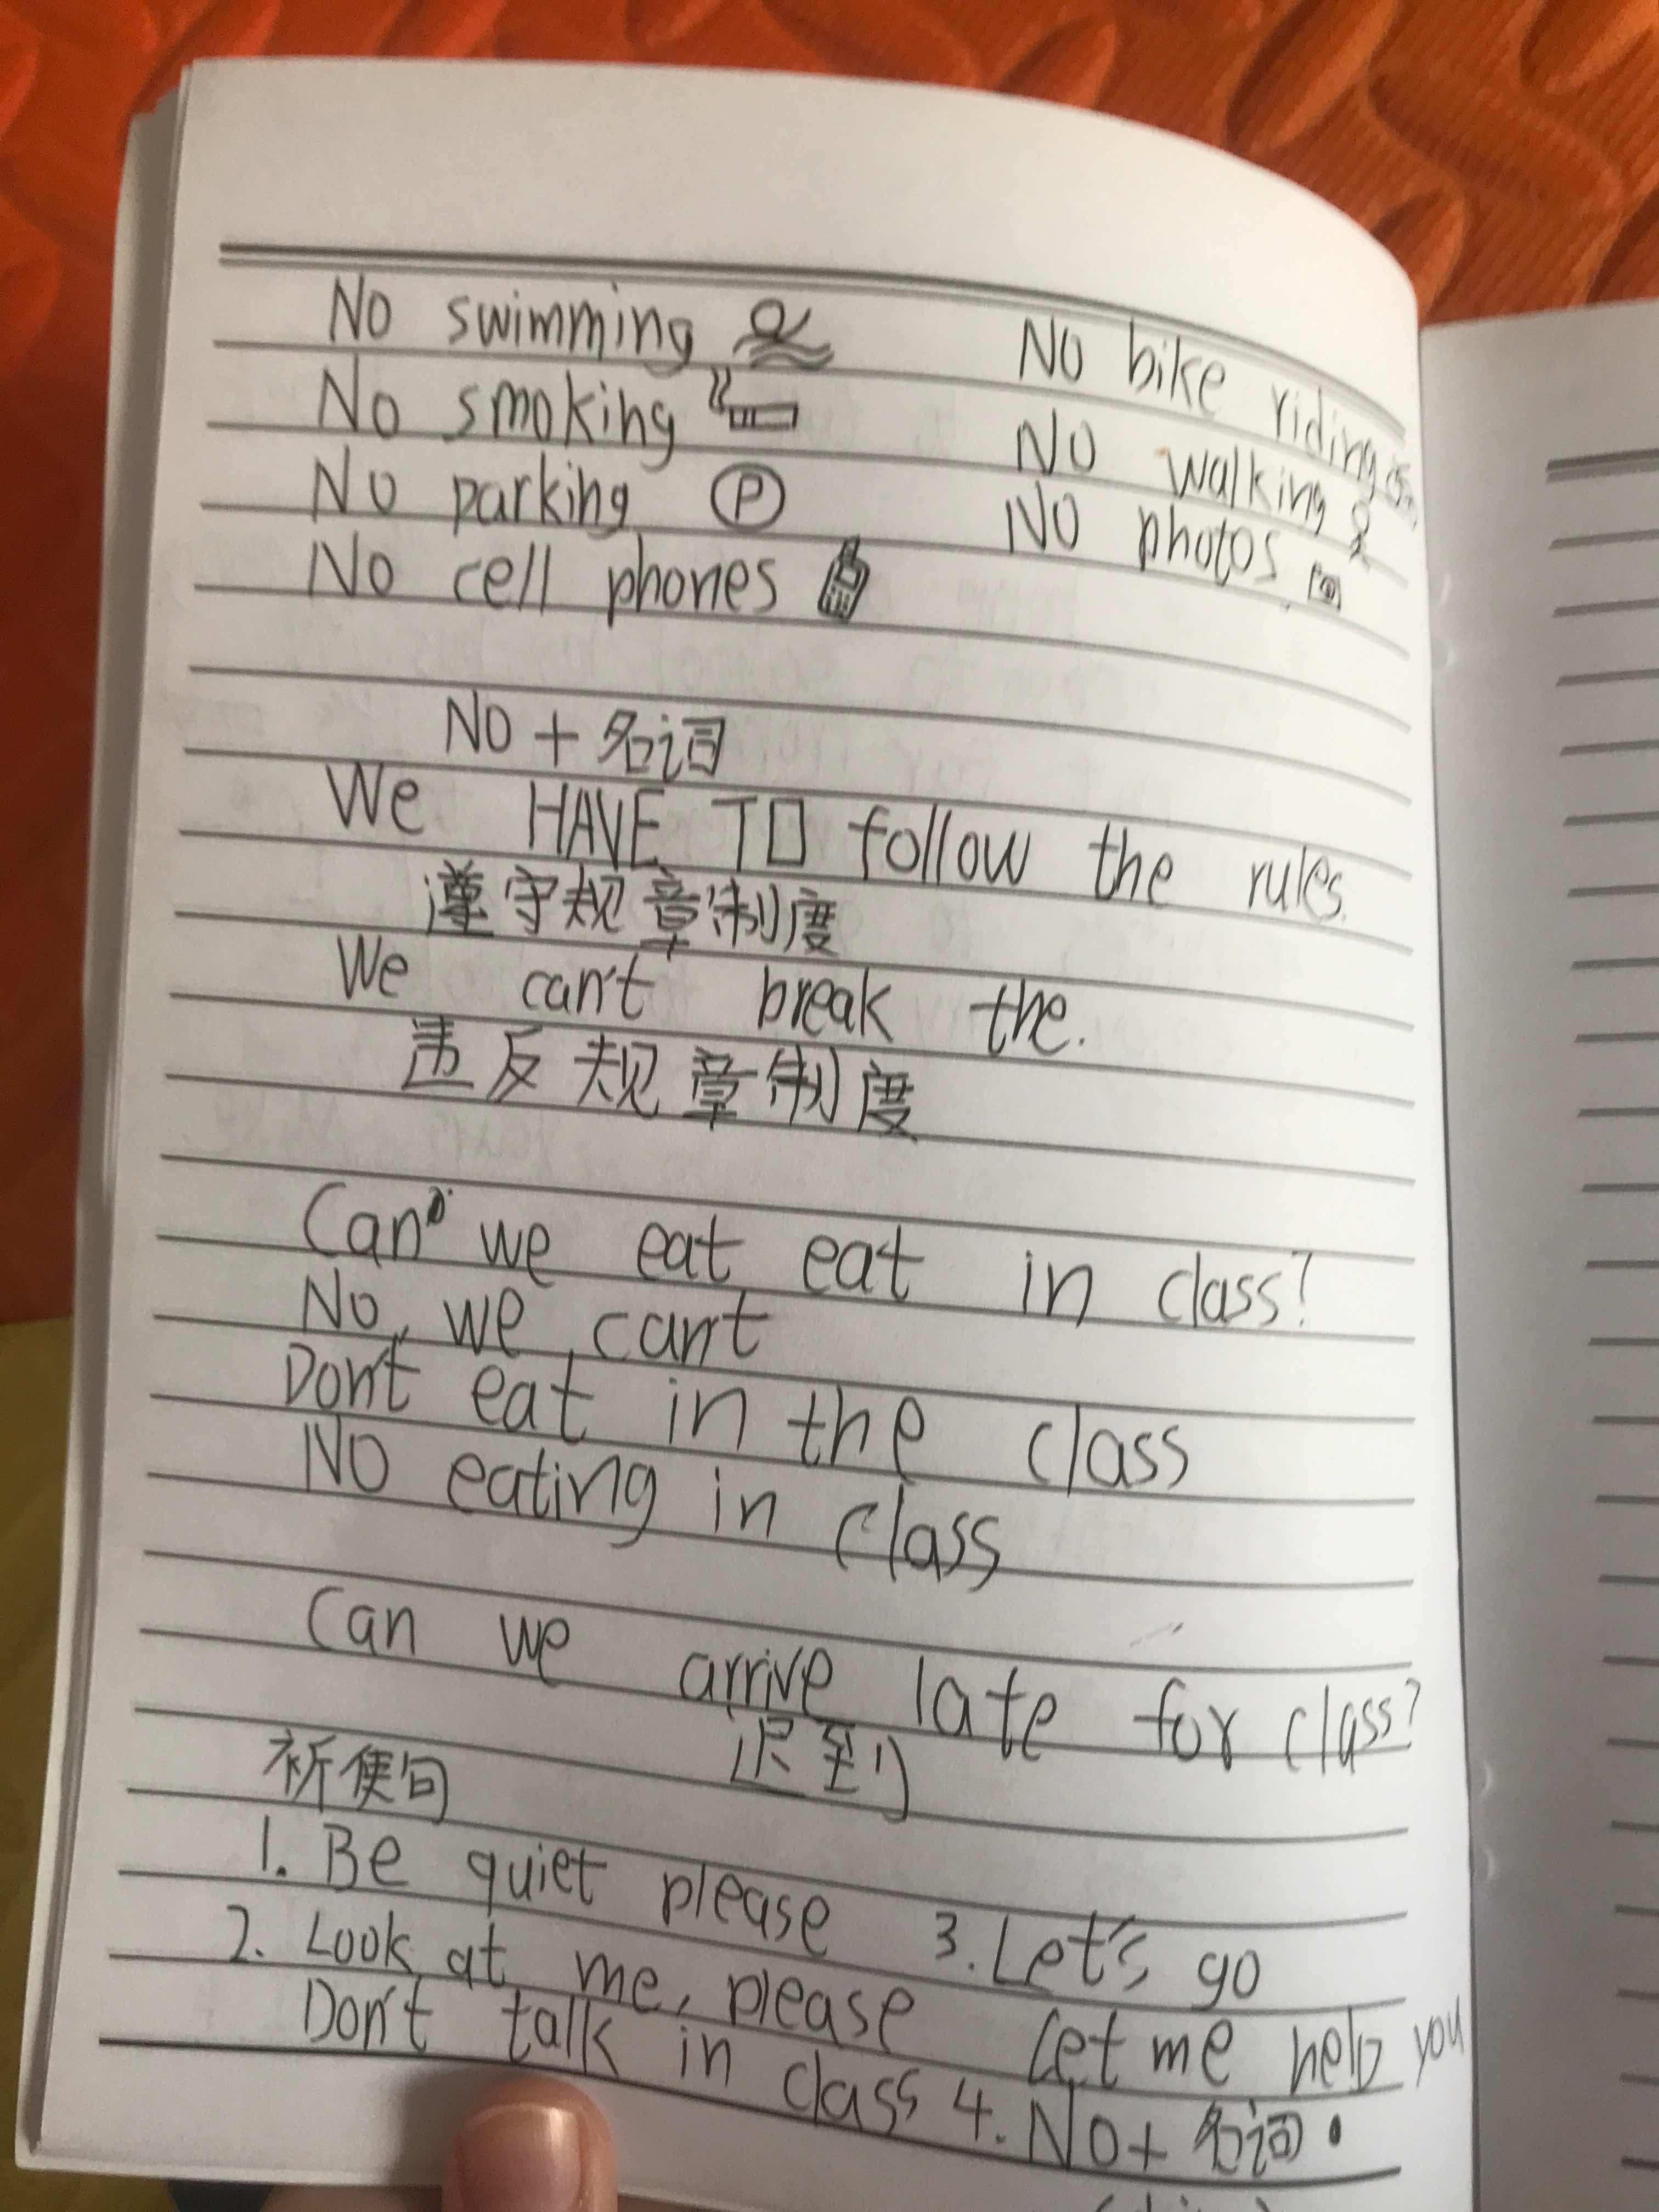 No swimming
No smoking
No parking P
No cell phones
No bike riding
No walking
No photos
No + 名词
We HAVE TO follow the rules.
遵守规章制度
We can't break the.
违反规章制度
Can we eat eat in class?
No, we can't
Don't eat in the class
No eating in class
Can we arrive late for class?
迟到
祈使句
1. Be quiet please
2. Look at me, please
Don't talk in class
3. Let's go
Let me help you
4. No+ 名词.